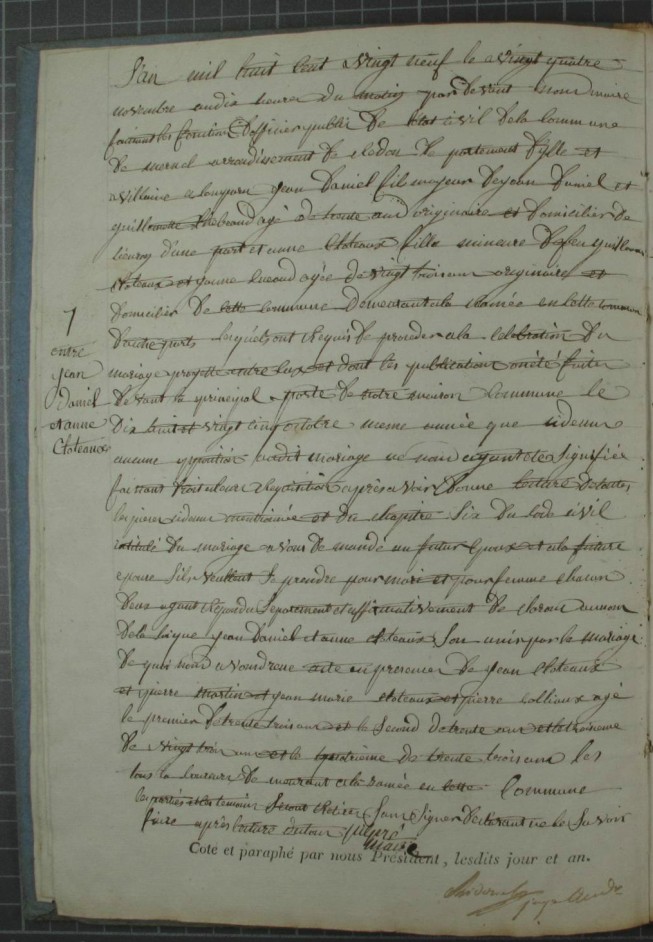 L'an mil huit cent vingt neuf le vingt quatre
novembre au dix heures du matin par devant nous maire
faisant les fonctions d'officier public de l'état civil de la commune
de mernel arrondissement de Redon de partement d'ylle et
villaine a comparu jean Daniel fils majeur de jean Daniel et
guillemette hildebrand agé de trente ans originaire et domicilier de
Lieuron d'une part et anne Cloteaux fille mineure de feu guillaume
cloteaux et jeanne agée de vingt trois ans originaire et
domicilier de cette commune demeurant a la ramée en cette commune
d'autre part lesquels ont requis de proceder a la celebration du
mariage projetté entre eux et dont les publication on été faites
devant la principal porte de notre maison commune le
dix huit et vingt cinq octobre meme année que si dessus
aucune opposition audit mariage ne nous ayant été signifiée
faissant droit a leur requisition apres avoir donne lecture de toutes
les pieces si dessus mentionnée et du chapitre six du code civil
intitulé du mariage avons de mandé au futur epoux et a la future
epouse s'ils veullent se prendre pour mari et pour femme chacun
deux ayant repondu separement et affirmativement declarons au nom
de la loi que jean Daniel et anne cloteaux son unis par le mariage
de quoi nous avons dresse acte en presence de jean Cloteaux
et pierre martin et jean marie cloteaux et pierre colliaux agé
le premier de trente trois ans et le second de trente ans et le troisieme
de vingt trois ans et le quatrieme de trente trois ans les
tous laboureurs demeurant a la ramée en cette commune
les parties et les temoins seront retirer sans signer declarant ne le savoir
faire après lecture du tour
maire
7
entre
jean
Daniel
et anne
Cloteaux
Coté et paraphé par nous Président, lesdits jour et an.